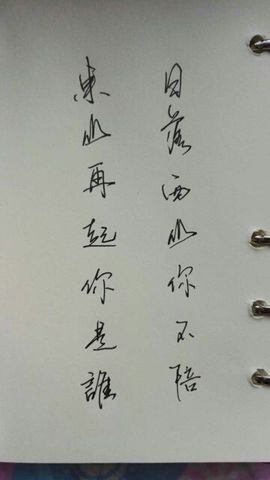 日落西山你不陪
東山再起你是誰